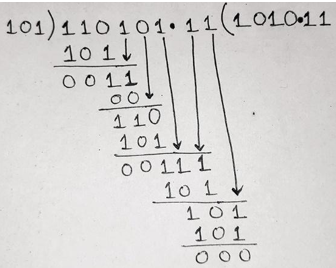 101)110101.11(1010.11
101
0011
00
110
101
00111
101
101
101
000